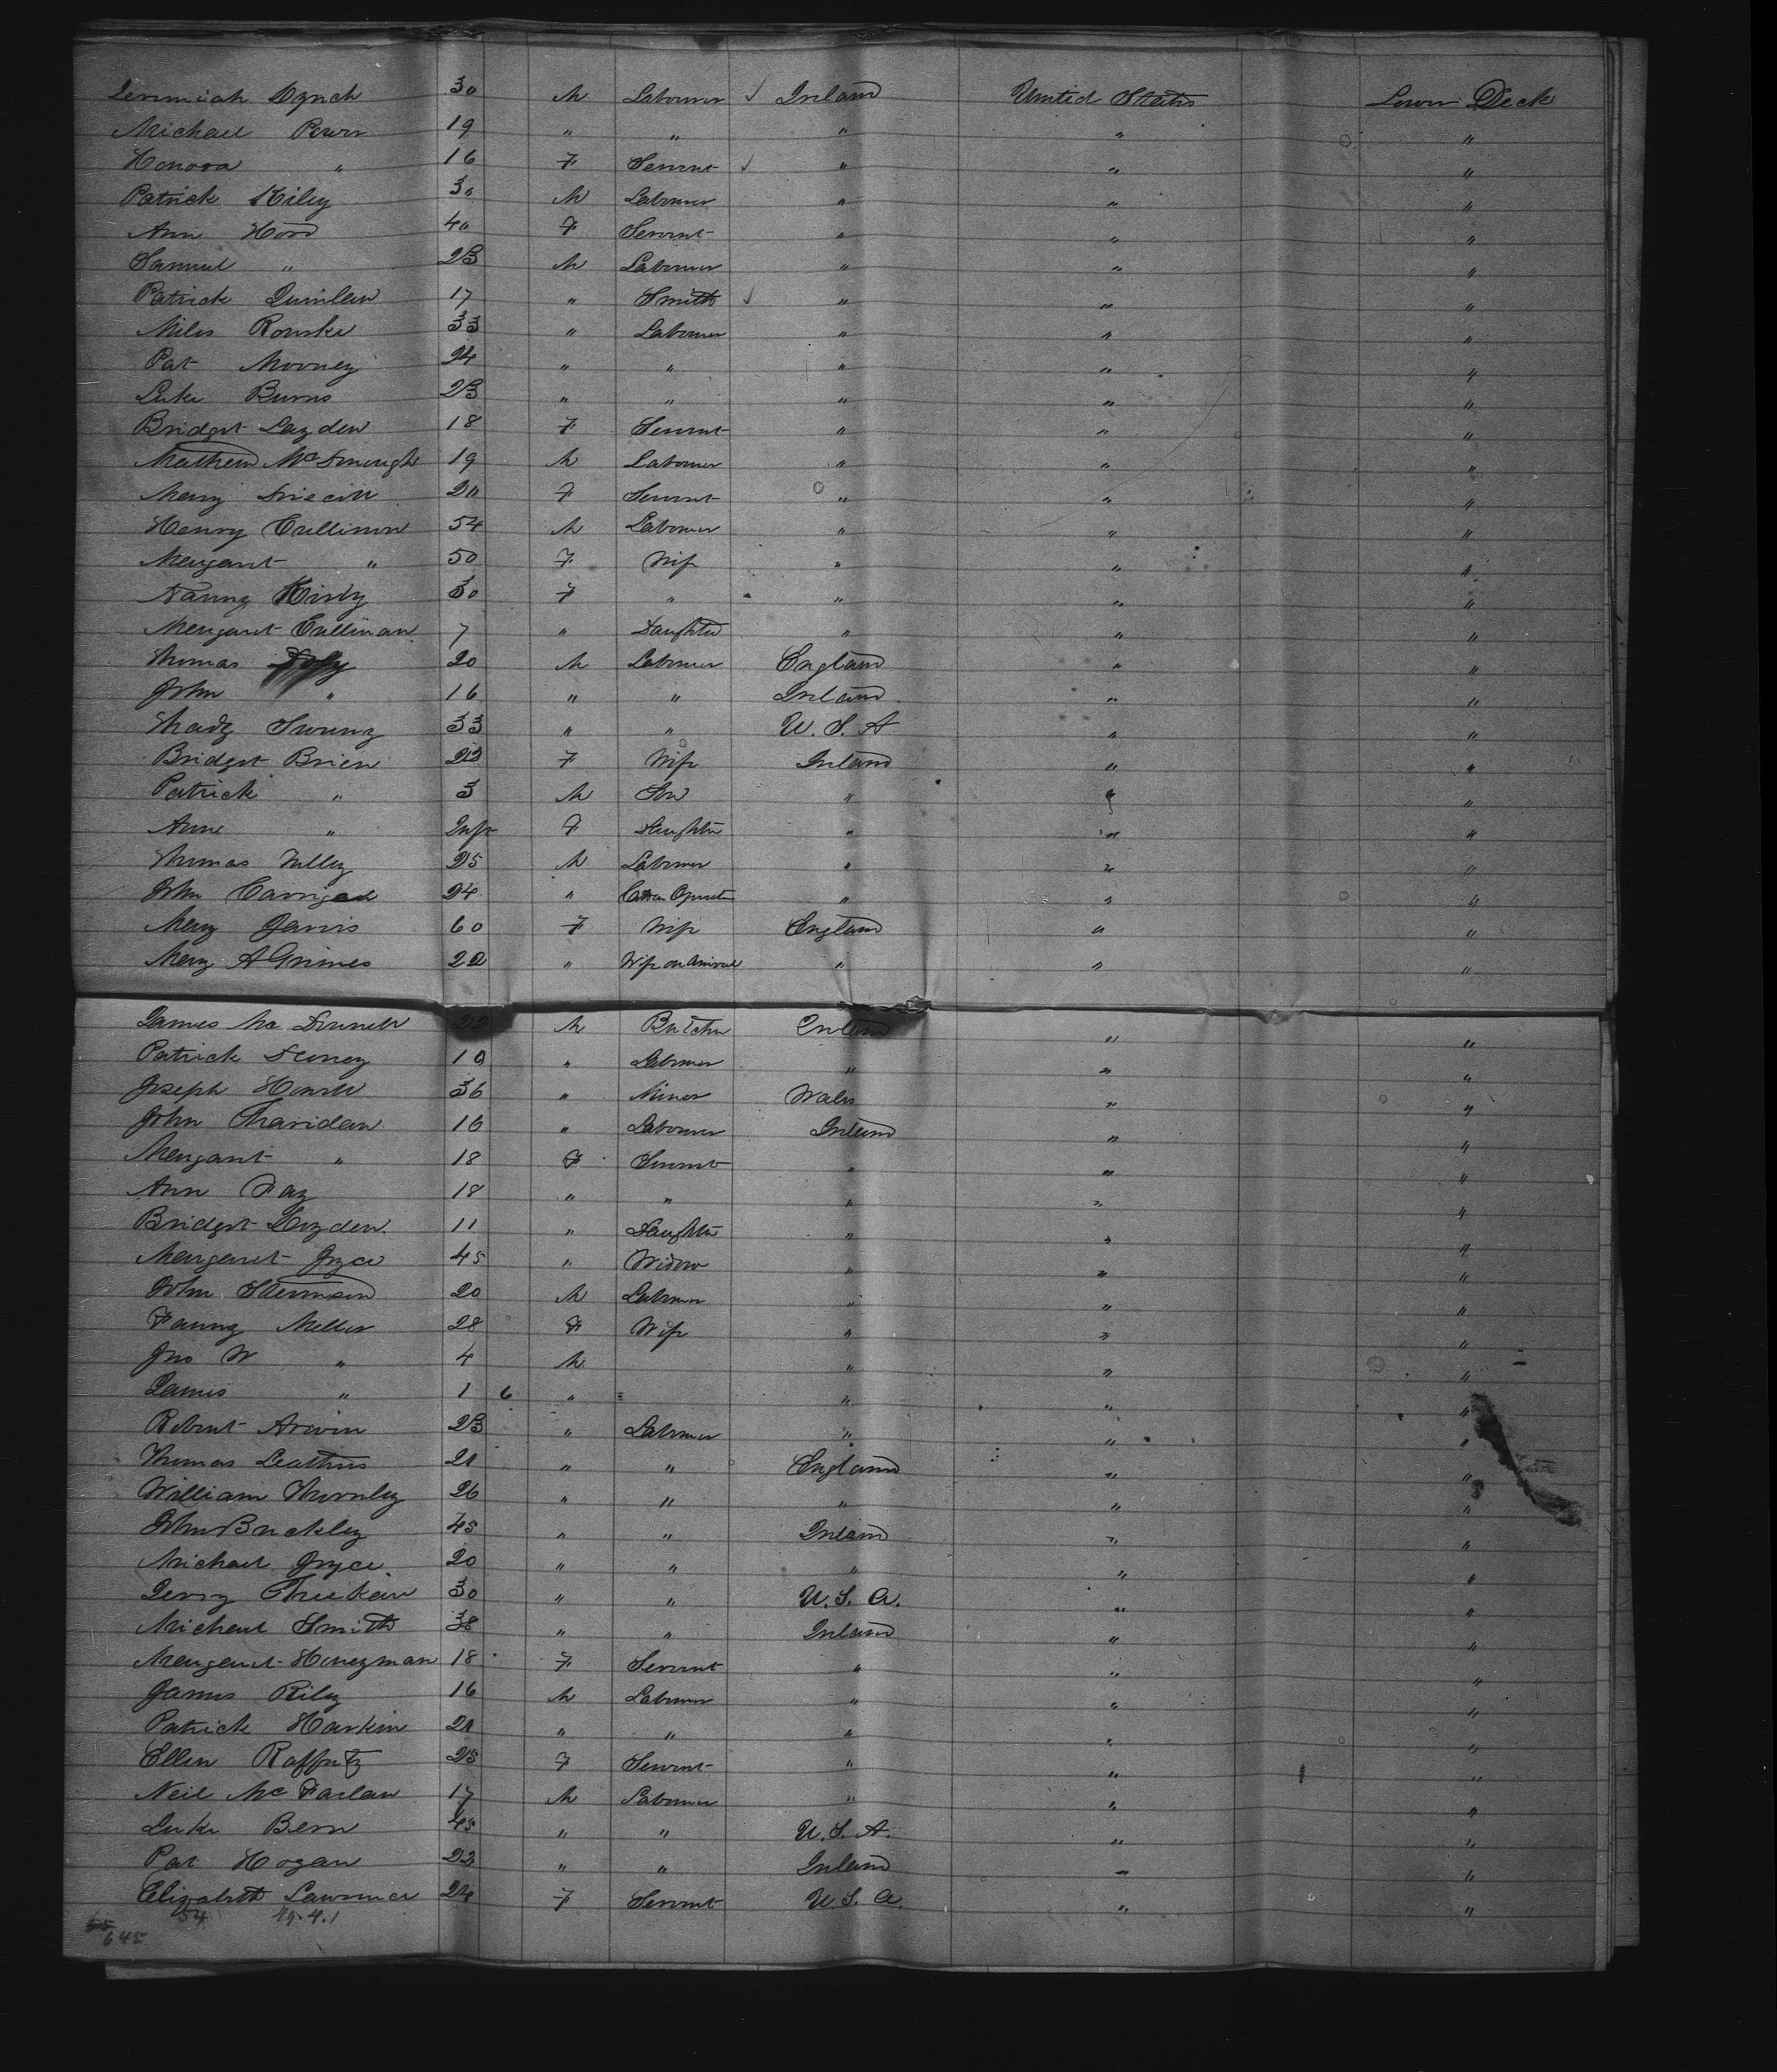 Jeremiah Lynch 30 M Labourer ✓ Ireland United States Lower Deck
Michael Power 19 " " " " "
Honora " 16 F Servant ✓ " " "
Patrick Kiley 30 M Labourer " " "
Ann Hord 40 F Servant " " "
Samuel " 23 M Labourer " " "
Patrick Quinlan 17 " Smith ✓ " " "
Miles Rourke 33 " Labourer " " "
Pat Mooney 24 " " " " "
Luke Burns 23 " " " " "
Bridget Layden 18 F Servant " " "
Mathew McDonough 19 M Labourer " " "
Mary Driscoll 20 F Servant " " "
Henry Cullinan 54 M Labourer " " "
Margaret " 50 F Wife " " "
Nanny Kirby 30 F " " " "
Margaret Cullinan 7 " Daughter " " "
Thomas 20 M Labourer England " "
John " 16 " " Ireland " "
Thady Sweeny 33 " " U. S. A " "
Bridget Brien 22 F Wife Ireland " "
Patrick " 3 M Son " " "
Anne " Inft F Daughter " " "
Thomas Tully 25 M Labourer " " "
John Carrigan 24 " Cotton Operator " " "
Mary Jarvis 60 F Wife England " "
Mary A Grimes 22 " Wife on Arrival " " "
James McDonnell 22 M Butcher Ireland " "
Patrick Doney " Labourer " " "
Joseph Howell 36 " Miner Wales " "
John Sharidan 16 " Labourer Ireland " "
Margaret " 18 F Servant " " "
Ann Fay 18 " " " " "
Bridget Layden 11 " Daughter " " "
Margaret Joyce 45 " Widow " " "
John 20 M Labourer " " "
Fanny Miller 28 F Wife " " "
Jno W " 4 M " " "
James " 1 6 " " " "
Robert Arwin 23 " Labourer " " "
Thomas Leathers 21 " " England " "
William Thornley 26 " " " " "
John Buckley 45 " " Ireland " "
Michael Joyce 20 " " " " "
Jerry Sheehan 30 " " U. S. A. " "
Michael Smith 38 " " Ireland " "
Margaret Honeyman 18 F Servant " " "
James Riley 16 M Labourer " " "
Patrick Harkin 21 " " " " "
Ellen Rafferty 25 F Servant " " "
Neil McFarlan 17 M Labourer " " "
Luke Bern 45 " " U. S. A. " "
Pat Hogan 22 " " Ireland " "
Elizabeth Lawrence 24 F Servant U. S. A. " "
54 49.4.1
645